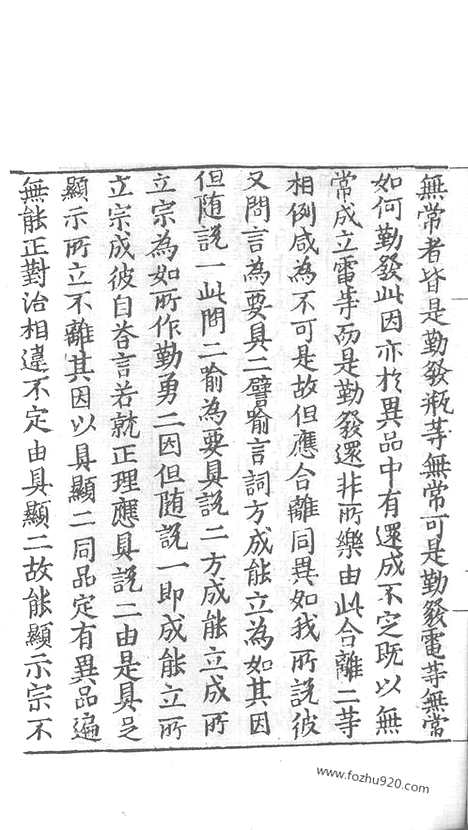 無常者皆是勤發瓶等無常可是勤發電等無常
如何勤發此因亦於異品中有還成不定既以無
常成立電等而是勤發還非所樂由此合離二等
相例咸為不可是故但應合離同異如我所說彼
又問言為要具二譬喻言詞方成能立為如其因
但随說一此問二喻為要具說二方成能立成所
立宗為如所作勤勇二因但随說一即成能立所
立宗成彼自荅言若就正理應具說二由是具足
顯示所立不離其因以具顯二同品定有異品遍
無能正對治相違不定由具顯二故能顯示宗不
www.fozhu920.com